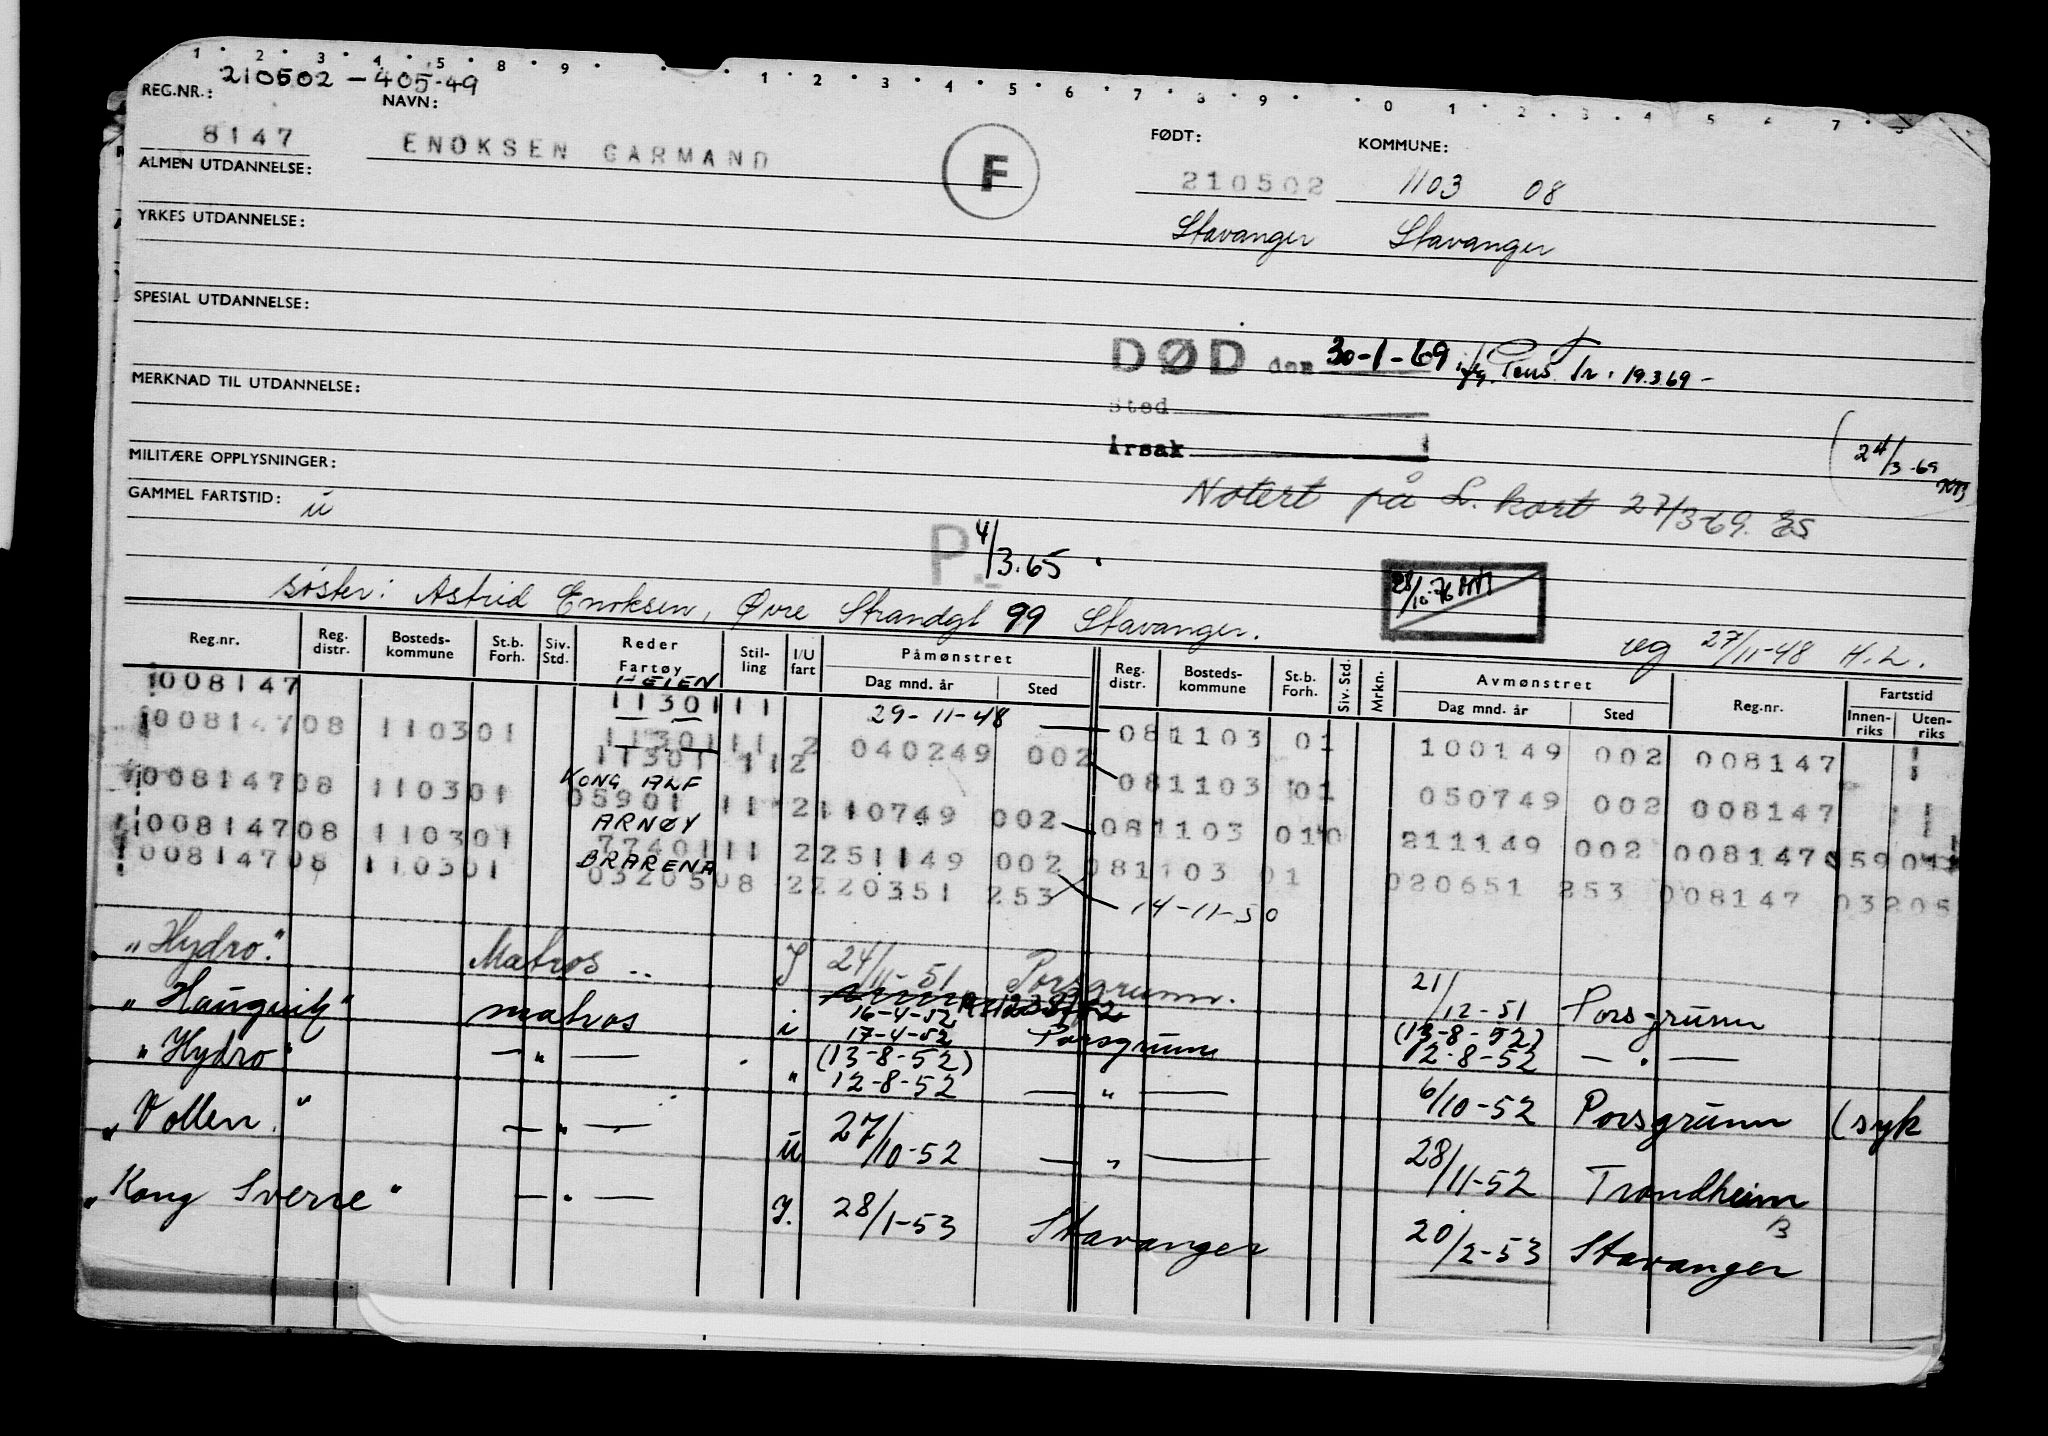 1 . 2 . 3 . 4 . 5 . 8 . 9 . . . 1 . 2 . 3 . 4 . 5 . 6 . 7 . 8 . 9 . . 0 1 . 2 . 3 . 4 5 6 7 .
210502 - 405-49
REG.NR.: NAVN: FØDT: KOMMUNE:
8147 ENOKSEN GARMAND F 210502 1103 08
ALMEN UTDANNELSE:
YRKES UTDANNELSE: Stavanger Stavanger
SPESIAL UTDANNELSE:
DØD den 30-1-69 Pens. Tr. 19.3.69 -
MERKNAD TIL UTDANNELSE:
Sted
Årsak
24/3-69
MILITÆRE OPPLYSNINGER:
GAMMEL FARTSTID: ü
Notert på S. kort 27/3-69. ES
P. 4/3.65
28/10-76
søster: Astrid Enoksen, Øvre Strandgt 99 Stavanger.
ug 27/11-48 H.L.
Reg.nr. Reg. distr. Bosteds-kommune St.b. Forh. Siv. Std. Reder Fartøy Stil-ling I/U fart Påmønstret Dag mnd. år Sted Reg. distr. Bosteds-kommune St.b. Forh. Siv. Std. Mrkn. Avmønstret Dag mnd. år Sted Reg.nr. Fartstid Innen-riks Uten-riks
HEIEN
008147 11301 11 29-11-48 081103 01 100149 002 008147
00814708 110301 11301 11 2 040249 002 081103 01 050749 002 008147
11301 112
KONG ALF
00814708 110301 05901 11 2 110749 002 081103 010 211149 002 008147 05901
ARNØY
00814708 110301 77401 11 2 251149 002 081103 01 020651 253 008147 03205
BRARENA
00814708 110301 03205 08 2 220351 253 14-11-50
"Hydro." Matros .. I 24/11-51 Porsgrunn. 21/12-51 Porsgrunn
16-4-52 (13-8-52)
"Haugvik" matros i 17-4-52 Porsgrunn 12-8-52 — . —
(13-8-52)
"Hydro" — " — " 12-8-52 — " — 6/10-52 Porsgrunn (syk
"Vollen." — " — ü 27/10-52 — " — 28/11-52 Trondheim
B
"Kong Sverre" — " — I. 28/1-53 Stavanger 20/2-53 Stavanger